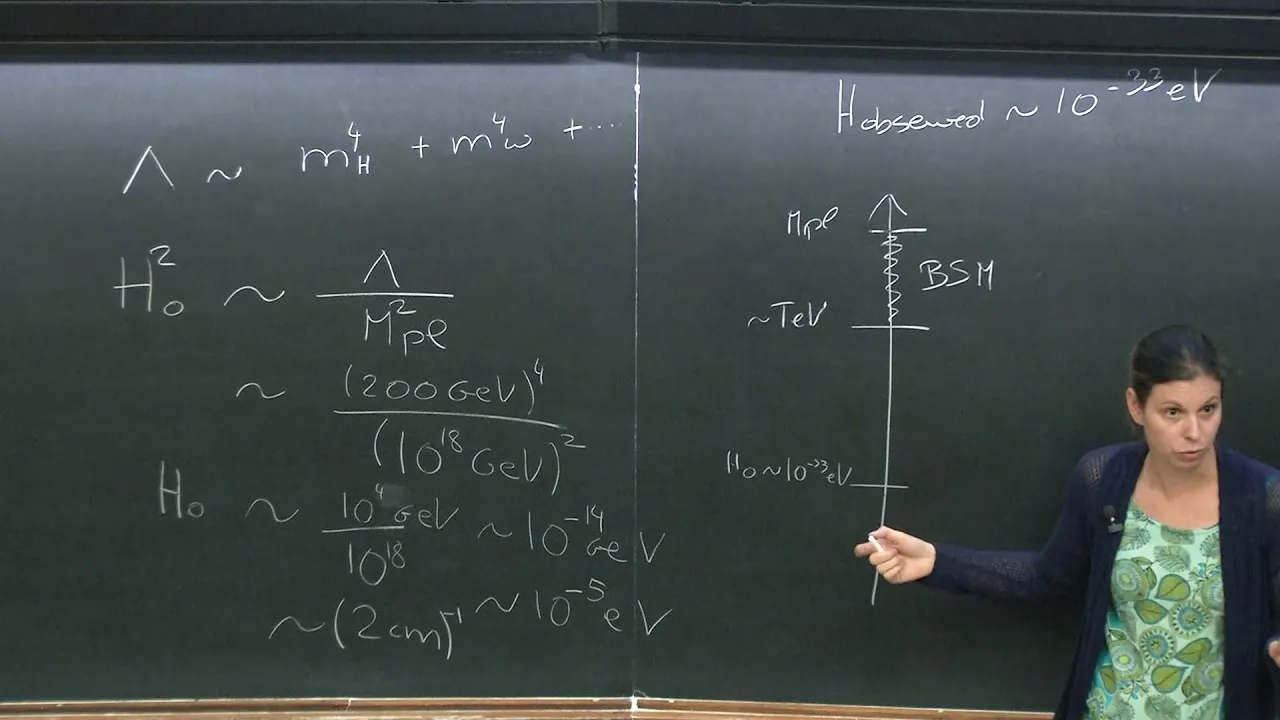 Λ ~ m⁴_H + m⁴_ω + ....
H₀² ~ Λ / M²_pl
~ (200 GeV)⁴ / (10¹⁸ GeV)²
H₀ ~ 10⁴ GeV / 10¹⁸ ~ 10⁻¹⁴ GeV
~ (2cm)⁻¹ ~ 10⁻⁵ eV
H observed ~ 10⁻³³ eV
Mpl
BSM
~TeV
H₀ ~ 10⁻³³ eV